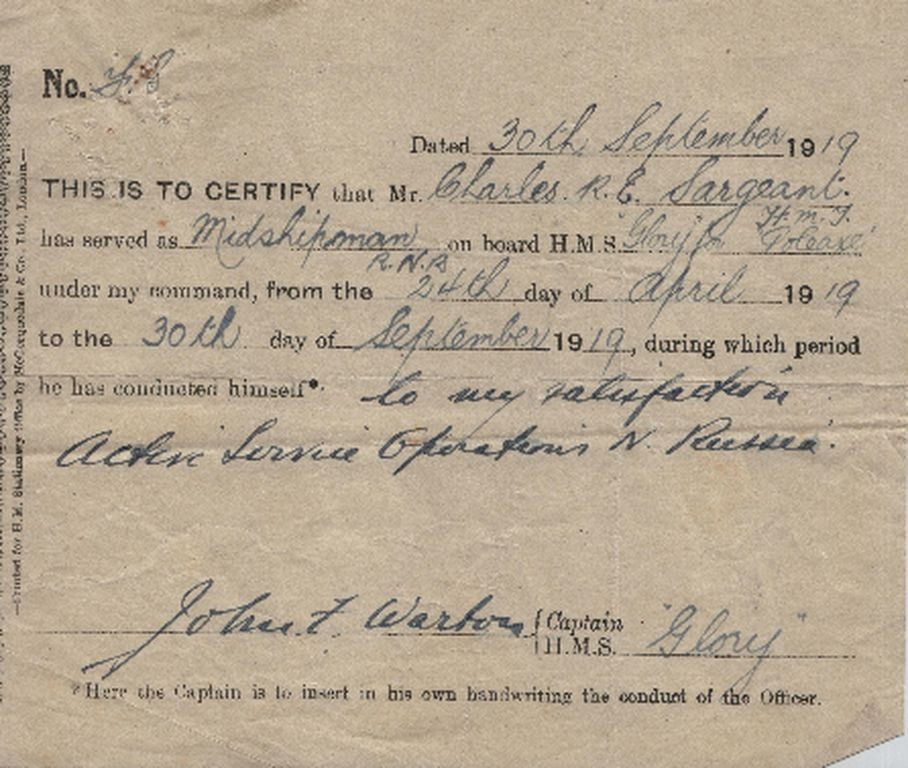 No.
Dated 30th September 1919
THIS IS TO CERTIFY that Mr. Charles R. E. Sargeant.
H.M.T.
has served as Midshipman on board H.M.S. "Glory" for
R.N.R
under my command, from the 24th day of April 1919
to the 30th day of September 1919, during which period
he has conducted himself*. to my satisfaction
Active Service Operations N. Russia.
John F. Warton { Captain
H.M.S. "Glory"
*Here the Captain is to insert in his own handwriting the conduct of the Officer.
—Printed for H.M. Stationery Office by McCorquodale & Co. Ltd., London.—